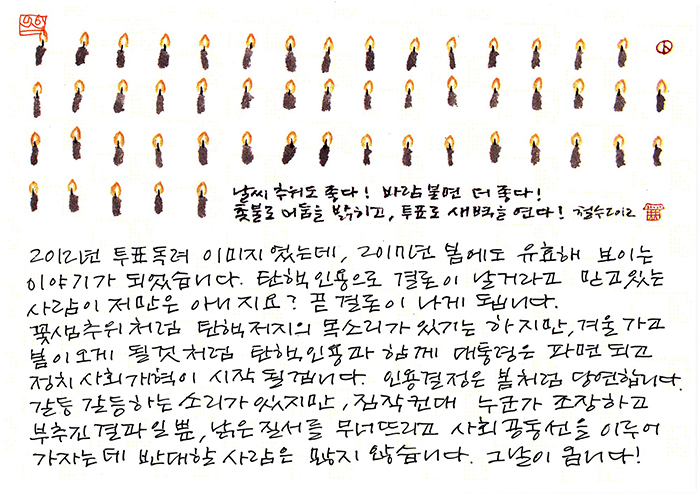 날씨 추워도 좋다! 바람불면 더 좋다!
촛불로 어둠을 밝히고, 투표로 새벽을 연다! 철수2012
2012년 투표독려 이미지였는데, 2017년 봄에도 유효해 보이는
이야기가 되었습니다. 탄핵인용으로 결론이 날거라고 믿고있는
사람이 저만은 아니지요? 곧 결론이 나게 됩니다.
꽃샘추위처럼 탄핵저지의 목소리가 있기는 하지만, 겨울가고
봄이오게 될것처럼 탄핵인용과 함께 대통령은 파면되고
정치사회개혁이 시작될겁니다. 인용결정은 봄처럼 당연합니다.
갈등 갈등하는 소리가 있지만, 짐작컨대 누군가 조장하고
부추긴 결과일뿐, 낡은 질서를 무너뜨리고 사회공동선을 이루어
가자는데 반대할 사람은 많지 않습니다. 그날이 옵니다!